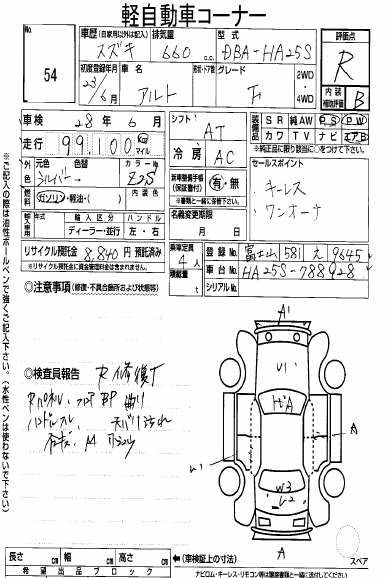 軽自動車コーナー
No. 54
車歴 (自家用以外は記入) スズキ
排気量 660 c.c.
型式 DBA-HA25S
評価点 R
初度登録年月 23/6月
車名 アルト
形状・ドア数
グレード F
2WD・4WD
内装補助評価 B
車検 28年6月
シフト AT
装備品 SR 純AW PS PW
カワ TV ナビ エアB
※純正品に限り該当に○をつけて下さい。
走行 99,100 km マイル
冷房 AC
セールスポイント
キーレス
ワンオーナ
外色 元色 シルバー 色替 カラーNo. Z2S
燃料 ガソリン・軽油・( )
新車整備手帳(保証書付) 有・無
※書類と一緒に保管して下さい。
輸入車用 年式 年 輸入区分 ディーラー・並行 ハンドル 左・右
名義変更期限 月 日
リサイクル預託金 8,840円 預託済み
※リサイクル預託金に資金管理料金は含まれません。
乗車定員 4人
積載量 t
登録No. 富士山 581 え 9645
車台No. HA25S-788928
シリアルNo.
◎注意事項 (修復・不具合箇所および状態等)
◎検査員報告 R修復T
A1
U1
A
A
W3
A
スペア
長さ cm 幅 cm 高さ cm (車検証上の寸法)
希望出品ブロック
ナビロム・キーレス・リモコン等は譲渡書類と一緒に送付してください
※ご記入の際は油性ボールペンで強くご記入下さい。(水性ペンは使わないで下さい)